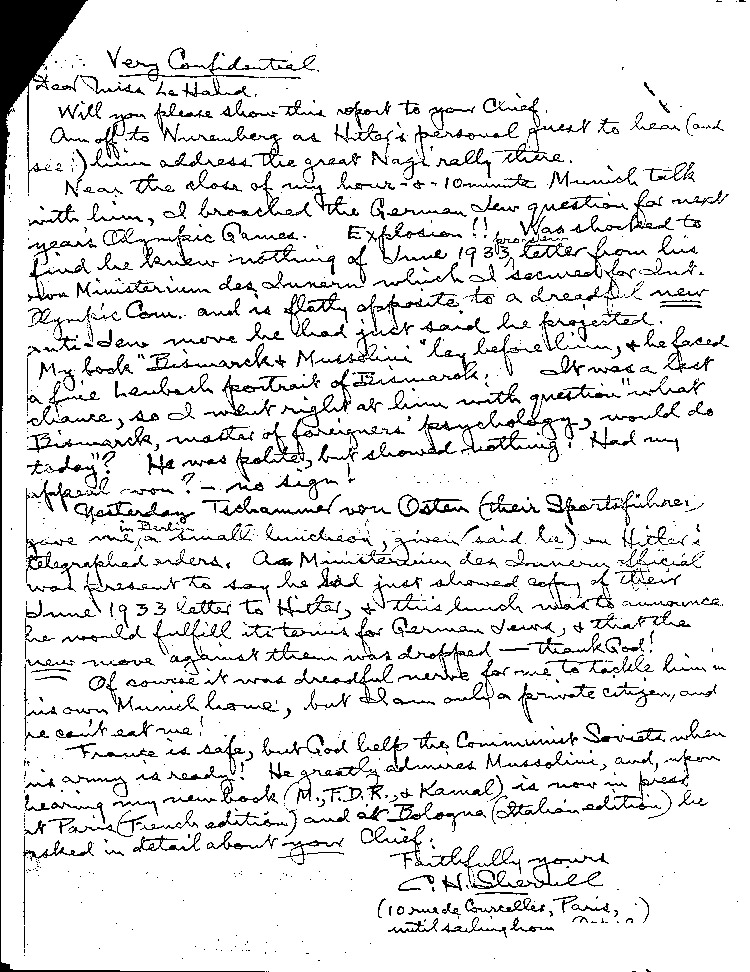 Very Confidential
Dear Miss Le Hand.
Will you please show this report to your Chief.
Am off to Nuremberg as Hitler's personal guest to hear (and
see!) him address the great Nazi rally there.
Near the close of my hour-&-10 minute Munich talk
with him, I broached the German Jew question for next
year's Olympic Games. Explosion!! Was shocked to
find he knew nothing of June 1933 letter from his
own Ministerium des Innern which I secured for Int.
Olympic Com. and is flatly opposite to a dreadful new
anti-Jew move he had just said he projected.
My book "Bismarck & Mussolini" lay before him, & he faced
a fine Lenbach portrait of Bismarck. It was a last
chance, so I went right at him with question "what
Bismarck, master of foreigners' psychology, would do
today"? He was polite, but showed nothing! Had my
appeal won? – no sign!
Yesterday Tschammer von Osten (their Sportsführer)
gave me in Berlin a small luncheon, given (said he) on Hitler's
telegraphed orders. A Ministerium des Innern official
was present to say he had just showed copy of their
June 1933 letter to Hitler, & this lunch was to announce
he would fulfill its terms for German Jews, & that the
new move against them was dropped – thank God!
Of course it was dreadful nerve for me to tackle him in
his own Munich home, but I am only a private citizen, and
he can't eat me!
France is safe, but God help the Communist Soviets when
his army is ready! He greatly admires Mussolini, and, upon
hearing my new book (M., F.D.R., & Kamal) is now in press
at Paris (French edition) and at Bologna (Italian edition) he
asked in detail about your Chief.
Faithfully yours
C. H. Sherrill
(10 rue de Courcelles, Paris,
until sailing from